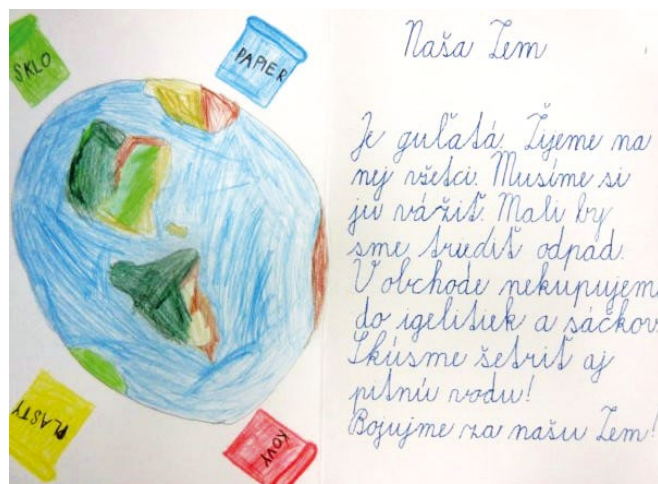 SKLO
PAPIER
PLASTY
KOVY
Naša Zem
Je guľatá. Žijeme na
nej všetci. Musíme si
ju vážiť. Mali by
sme triediť odpad.
V obchode nekupujeme
do igelitiek a sáčkov.
Skúsme šetriť aj
pitnú vodu!
Bojujme za našu Zem!